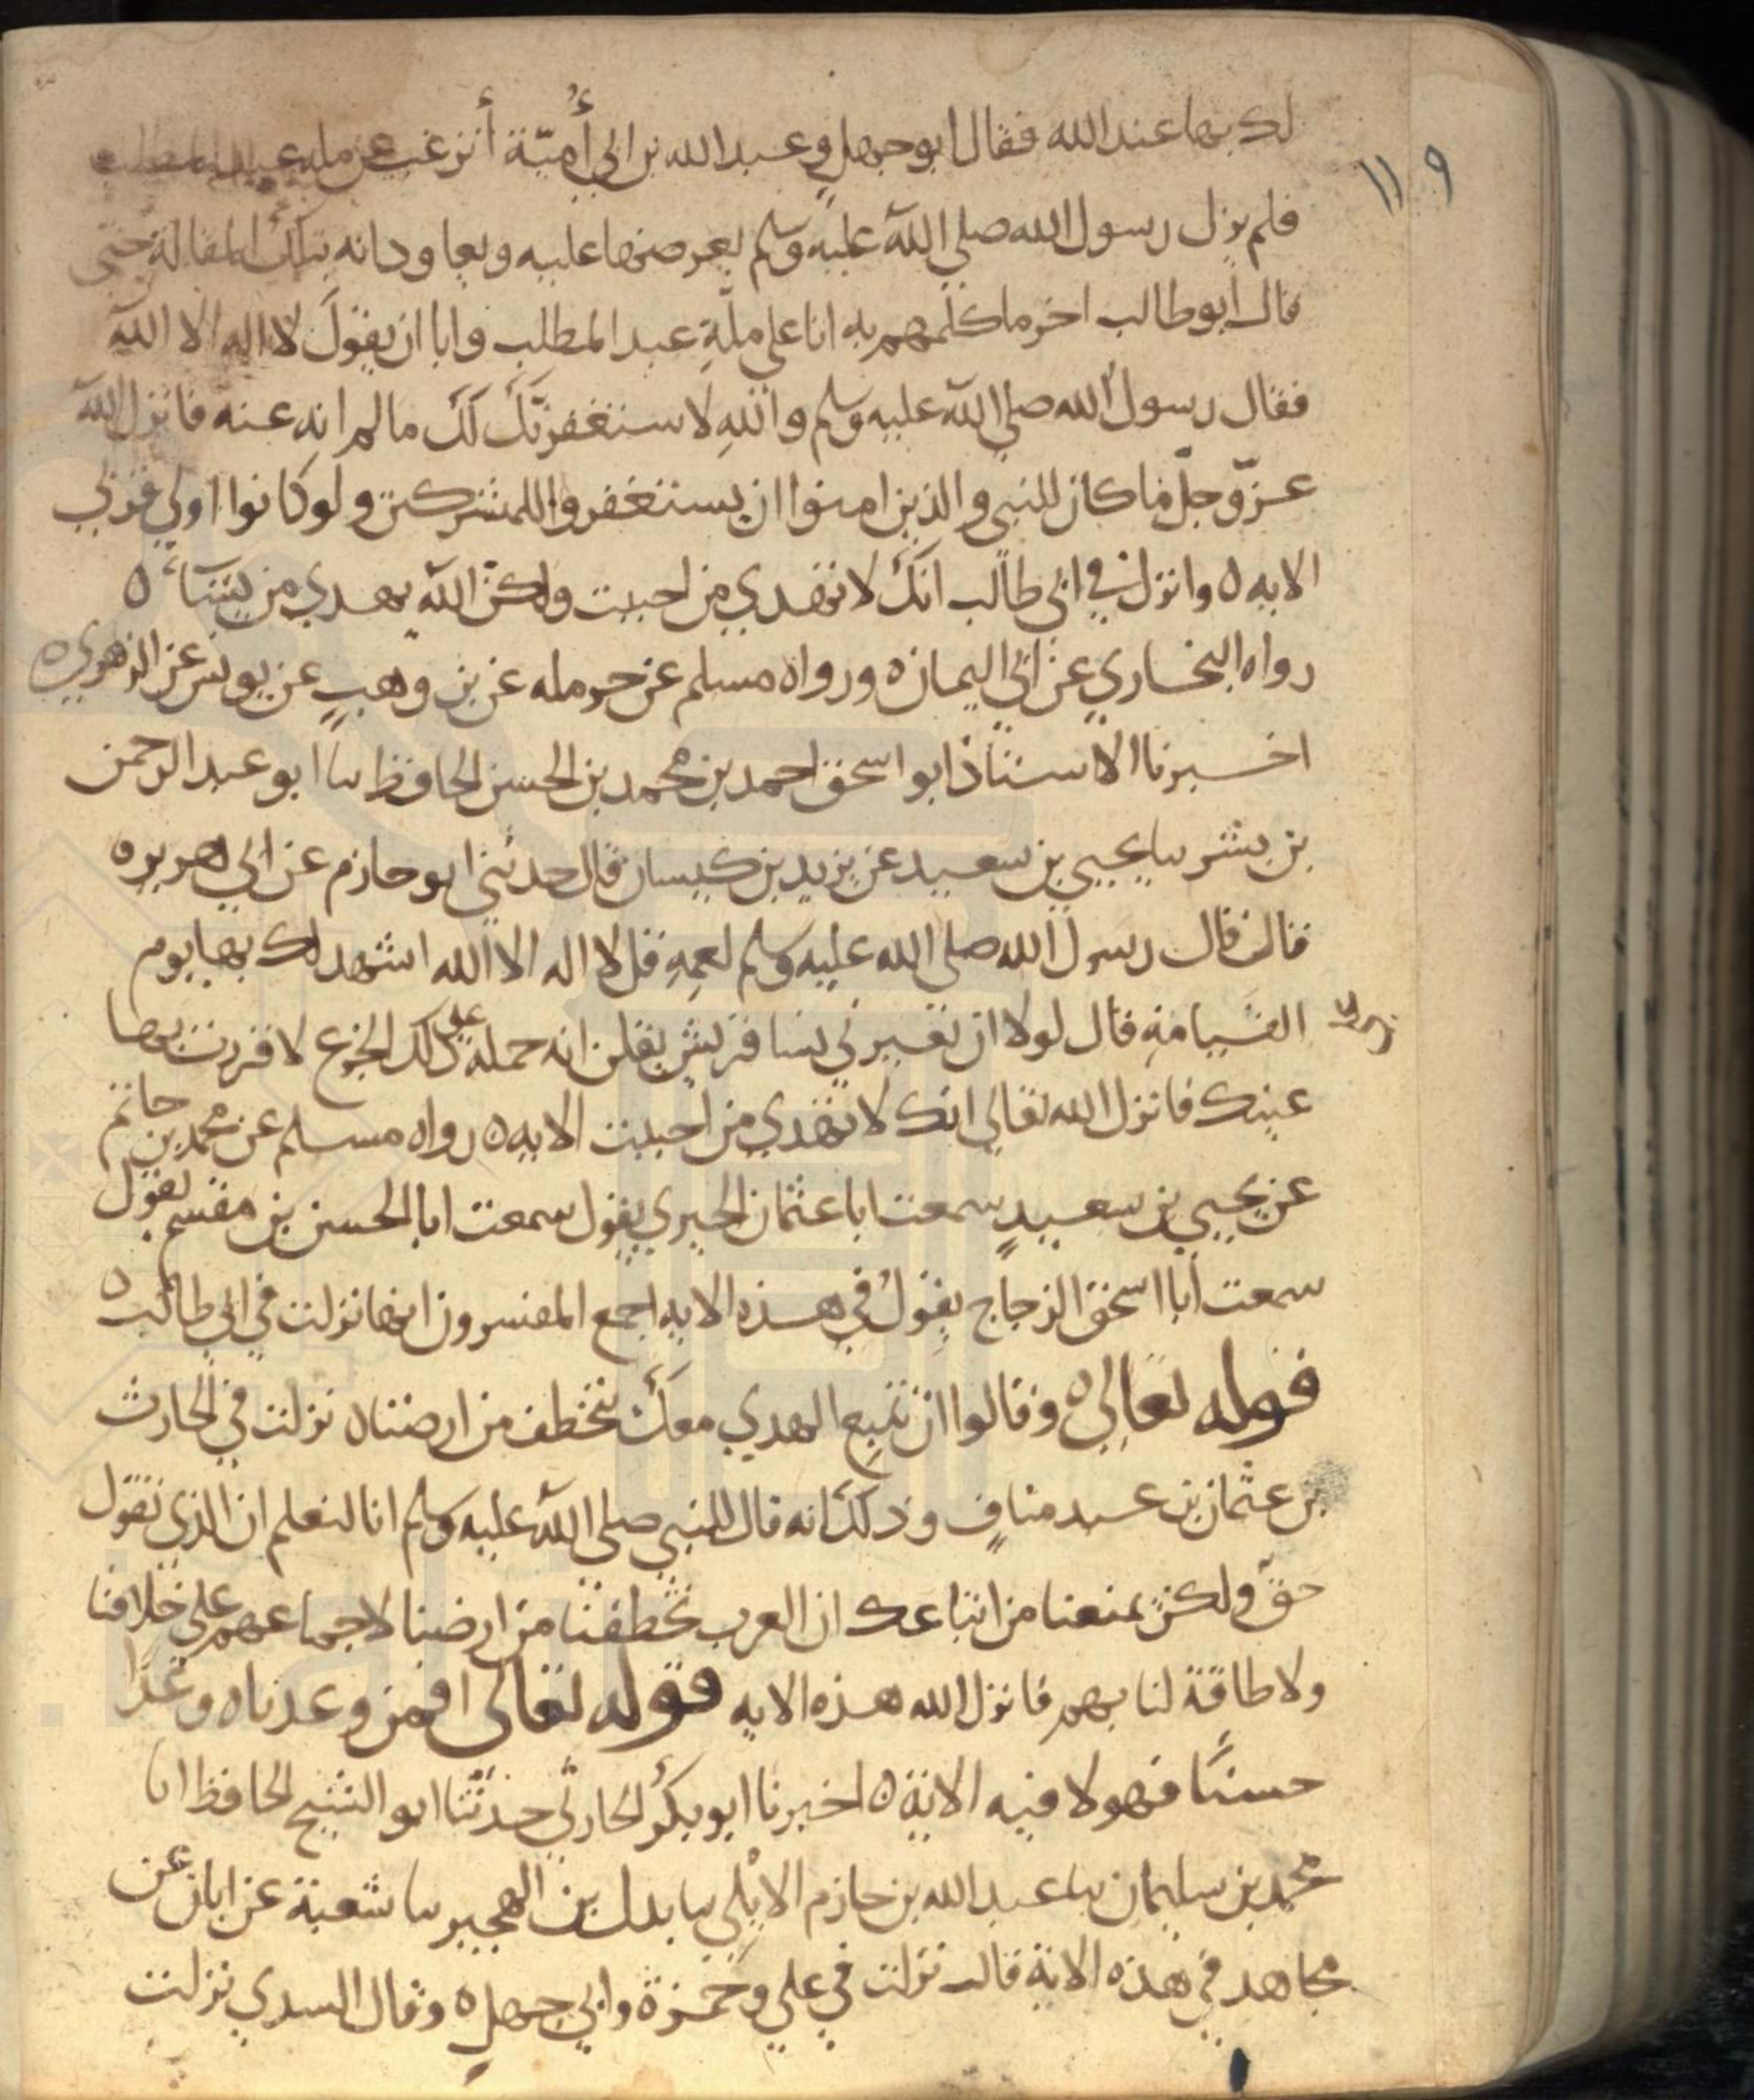 ١١٩
لك بها عند الله فقال ابو جهل وعبد الله بن ابي أُميّة أترغب عن مله عبد المطلب
فلم يزل رسول الله صلي الله عليه وسلم يعرضها عليه ويعاودانه بتلك المقالة حتي
قال ابو طالب اخر ما كلمهم به انا علي ملّةِ عبد المطلب وابا ان يقولَ لا اله الا الله
فقال رسول الله صلي الله عليه وسلم واللهِ لاستغفرنّك لك ما لم انه عنه فانزل الله
عزّ وجلّ ما كان للنبي والذين امنوا ان يستغفروا للمشركين ولو كانوا اولي قربي
الايه ٥ وانزل في ابي طالب انك لا تهدي من احببت ولكنّ الله يهدي من يشآء ٥
رواه البخاري عن ابي اليمان ٥ ورواه مسلم عن حرمله عن بن وهبٍ عن يونس عن الزهري ٥
اخبرنا الاستاذ ابو اسحق احمد بن محمد بن الحسن الحافظ سا ابو عبد الرحمن
بن بشر سا يحيي بن سعيد عن يزيد بن كيسان قال حدثني ابو حازم عن ابي هريره
قال قال رسول الله صلي الله عليه وسلم لعمهِ قل لا اله الا الله اشهد لك بها يوم
القيامةِ قال لولا ان تعيرني نسا قريش يقلن انه حمله علي ذلك الجزع لاقررت بها
عينك فانزل الله تعالي انك لا تهدي من احببت الايه ٥ رواه مسلم عن محمد بن حاتم
عن يحيي بن سعيدٍ سمعت ابا عثمان الحيري يقول سمعت ابا الحسن بن مقسم يقول
سمعت أبا اسحق الزجاج يقولُ في هذه الايه اجمع المفسرون انها نزلت في ابي طالب ٥
قوله تعالي ٥ وقالوا ان نتبع الهدي معك نتخطف من ارضنا ٥ نزلت في الحارث
بن عثمان بن عبد منافٍ وذلك انه قال للنبي صلي الله عليه وسلم انا لنعلم ان الذي تقول
حقّ ولكن يمنعنا من اتباعك ان العرب تخطفنا من ارضنا لاجماعهم علي خلافنا
ولا طاقة لنا بهم فانزل الله هذه الايه قوله تعالي افمن وعدناه وعدًا
حسنًا فهو لاقيه الاية ٥ اخبرنا ابو بكر الحارثي حدثنا ابو الشيخ الحافظ انا
محمد بن سليمان سا عبد الله بن حازم الايلي سا بدل بن المحبر سا شعبة عن ابان عن
مجاهد في هذه الاية قال نزلت في علي وحمزة وابي جهل ٥ وقال السدي نزلت